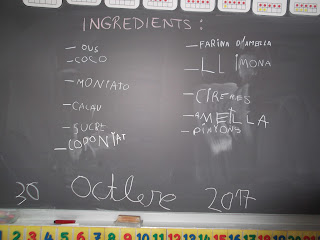 INGREDIENTS:
- OUS
- COCO
- MONIATO
- CACAU
- SUCRE
- CODONYAT
- FARINA D'AMETLLA
- LLIMONA
- CIRERES
- AMETLLA
- PINYONS
30 Octubre 2017
1 2 3 4 5 6 7 8 9 10 11 12 13 14 15 16 17 18 19 20 21